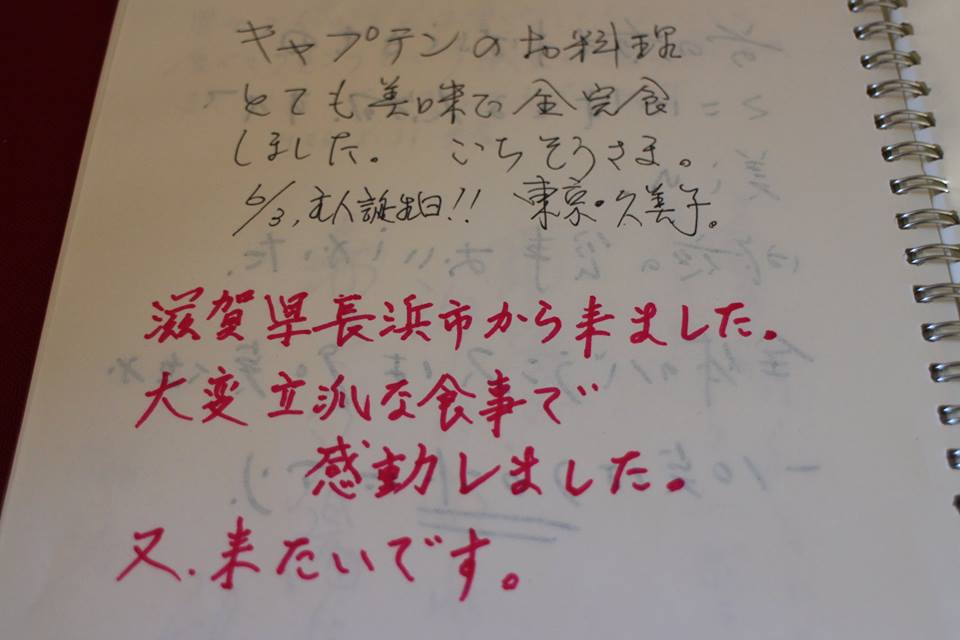 キャプテンのお料理
とても美味で全完食
しました。 ごちそうさま。
6/3, 主人誕生日!! 東京・久美子。
滋賀県長浜市から来ました。
大変立派な食事で
感動しました。
又、来たいです。